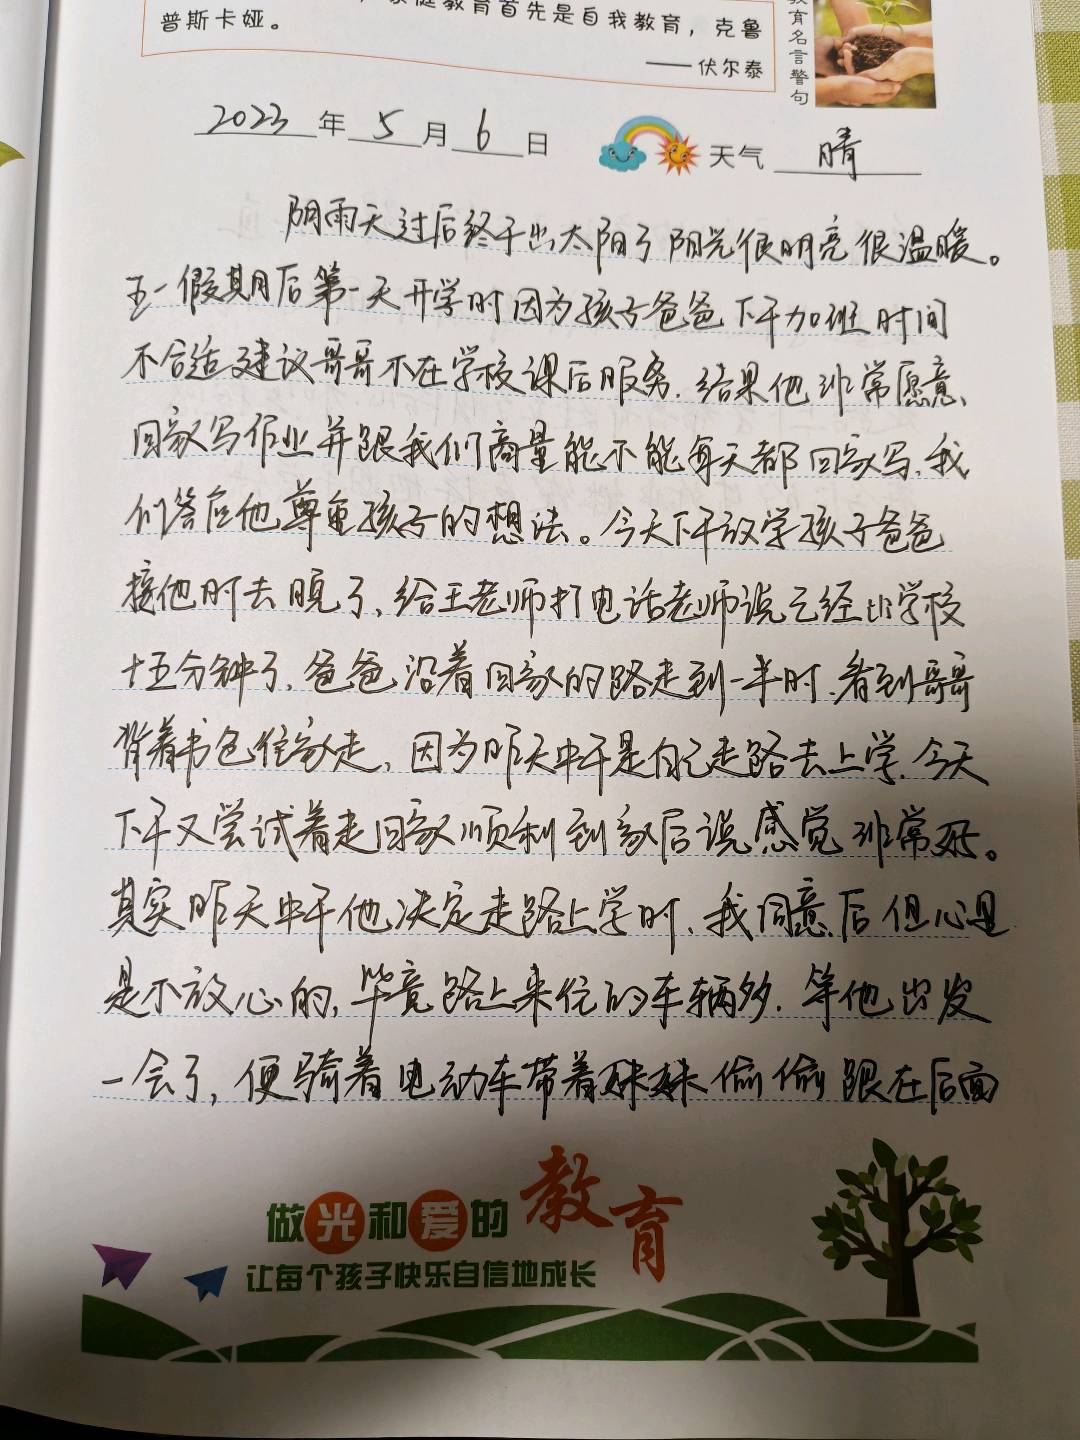 家庭教育首先是自我教育，克鲁
普斯卡娅。
——伏尔泰
教育名言警句
2023年5月6日 天气 晴
阴雨天过后终于出太阳了阳光很明亮很温暖。
五一假期后第一天开学时因为孩子爸爸下午加班时间
不合适建议哥哥不在学校课后服务.结果他非常愿意
回家写作业并跟我们商量能不能每天都回家写.我
们答应他尊重孩子的想法。今天下午放学孩子爸爸
接他时去晚了、给王老师打电话老师说已经出学校
十五分钟了.爸爸沿着回家的路走到一半时.看到哥哥
背着书包往家走，因为昨天中午是自己走路去上学.今天
下午又尝试着走回家顺利到家后说感觉非常好。
其实昨天中午他决定走路上学时、我同意后但心里
是不放心的，毕竟路上来往的车辆多.等他出发
一会了，便骑着电动车带着妹妹偷偷跟在后面
做光和爱的教育
让每个孩子快乐自信地成长